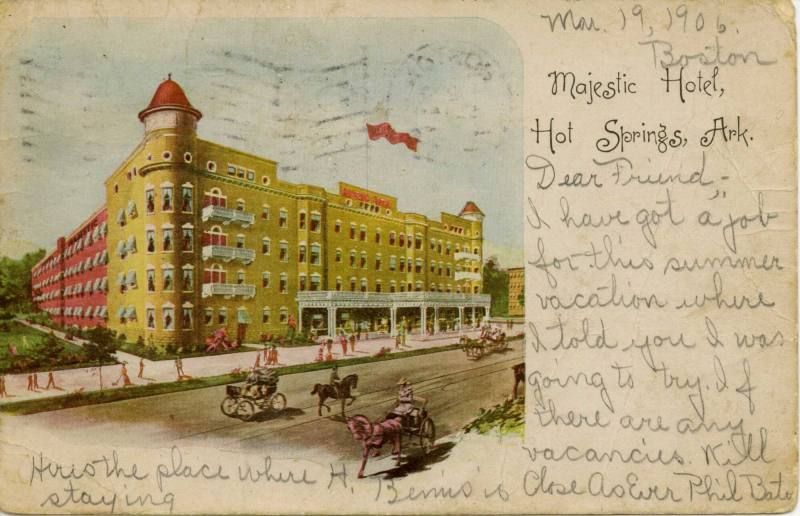 Mar. 19, 1906.
Boston
Majestic Hotel,
Hot Springs, Ark.
Dear Friend,-
I have got a job
for this summer
vacation where
I told you I was
going to try. If
there are any
vacancies. Will
Close As Ever Phil Bate
Here's the place where H. Bemis is
staying